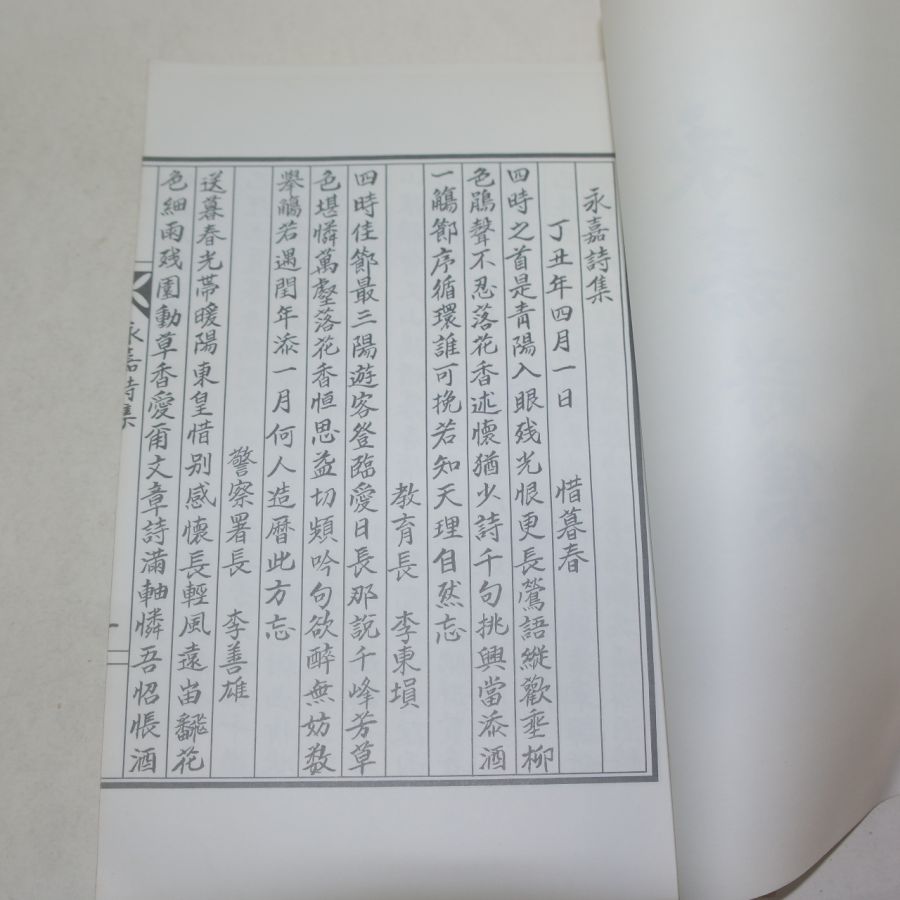 永嘉詩集
丁丑年四月一日 惜暮春
四時之首是青陽入眼残光恨更長鶯語縱歡垂柳
色鵑聲不忍落花香述懷猶少詩千句挑興當添酒
一觴節序循環誰可挽若知天理自然忘
教育長 李東塤
四時佳節最三陽遊客登臨愛日長那說千峰芳草
色堪憐萬壑落花香恒思益切頻吟句欲醉無妨数
擧觴若遇閏年添一月何人造曆此方忘
警察署長 李善雄
送暮春光帶暖陽東皇惜别感懷長輕風遠畓飜花
色細雨残園動草香愛爾文章詩滿軸憐吾怊悵酒
永嘉詩集
一